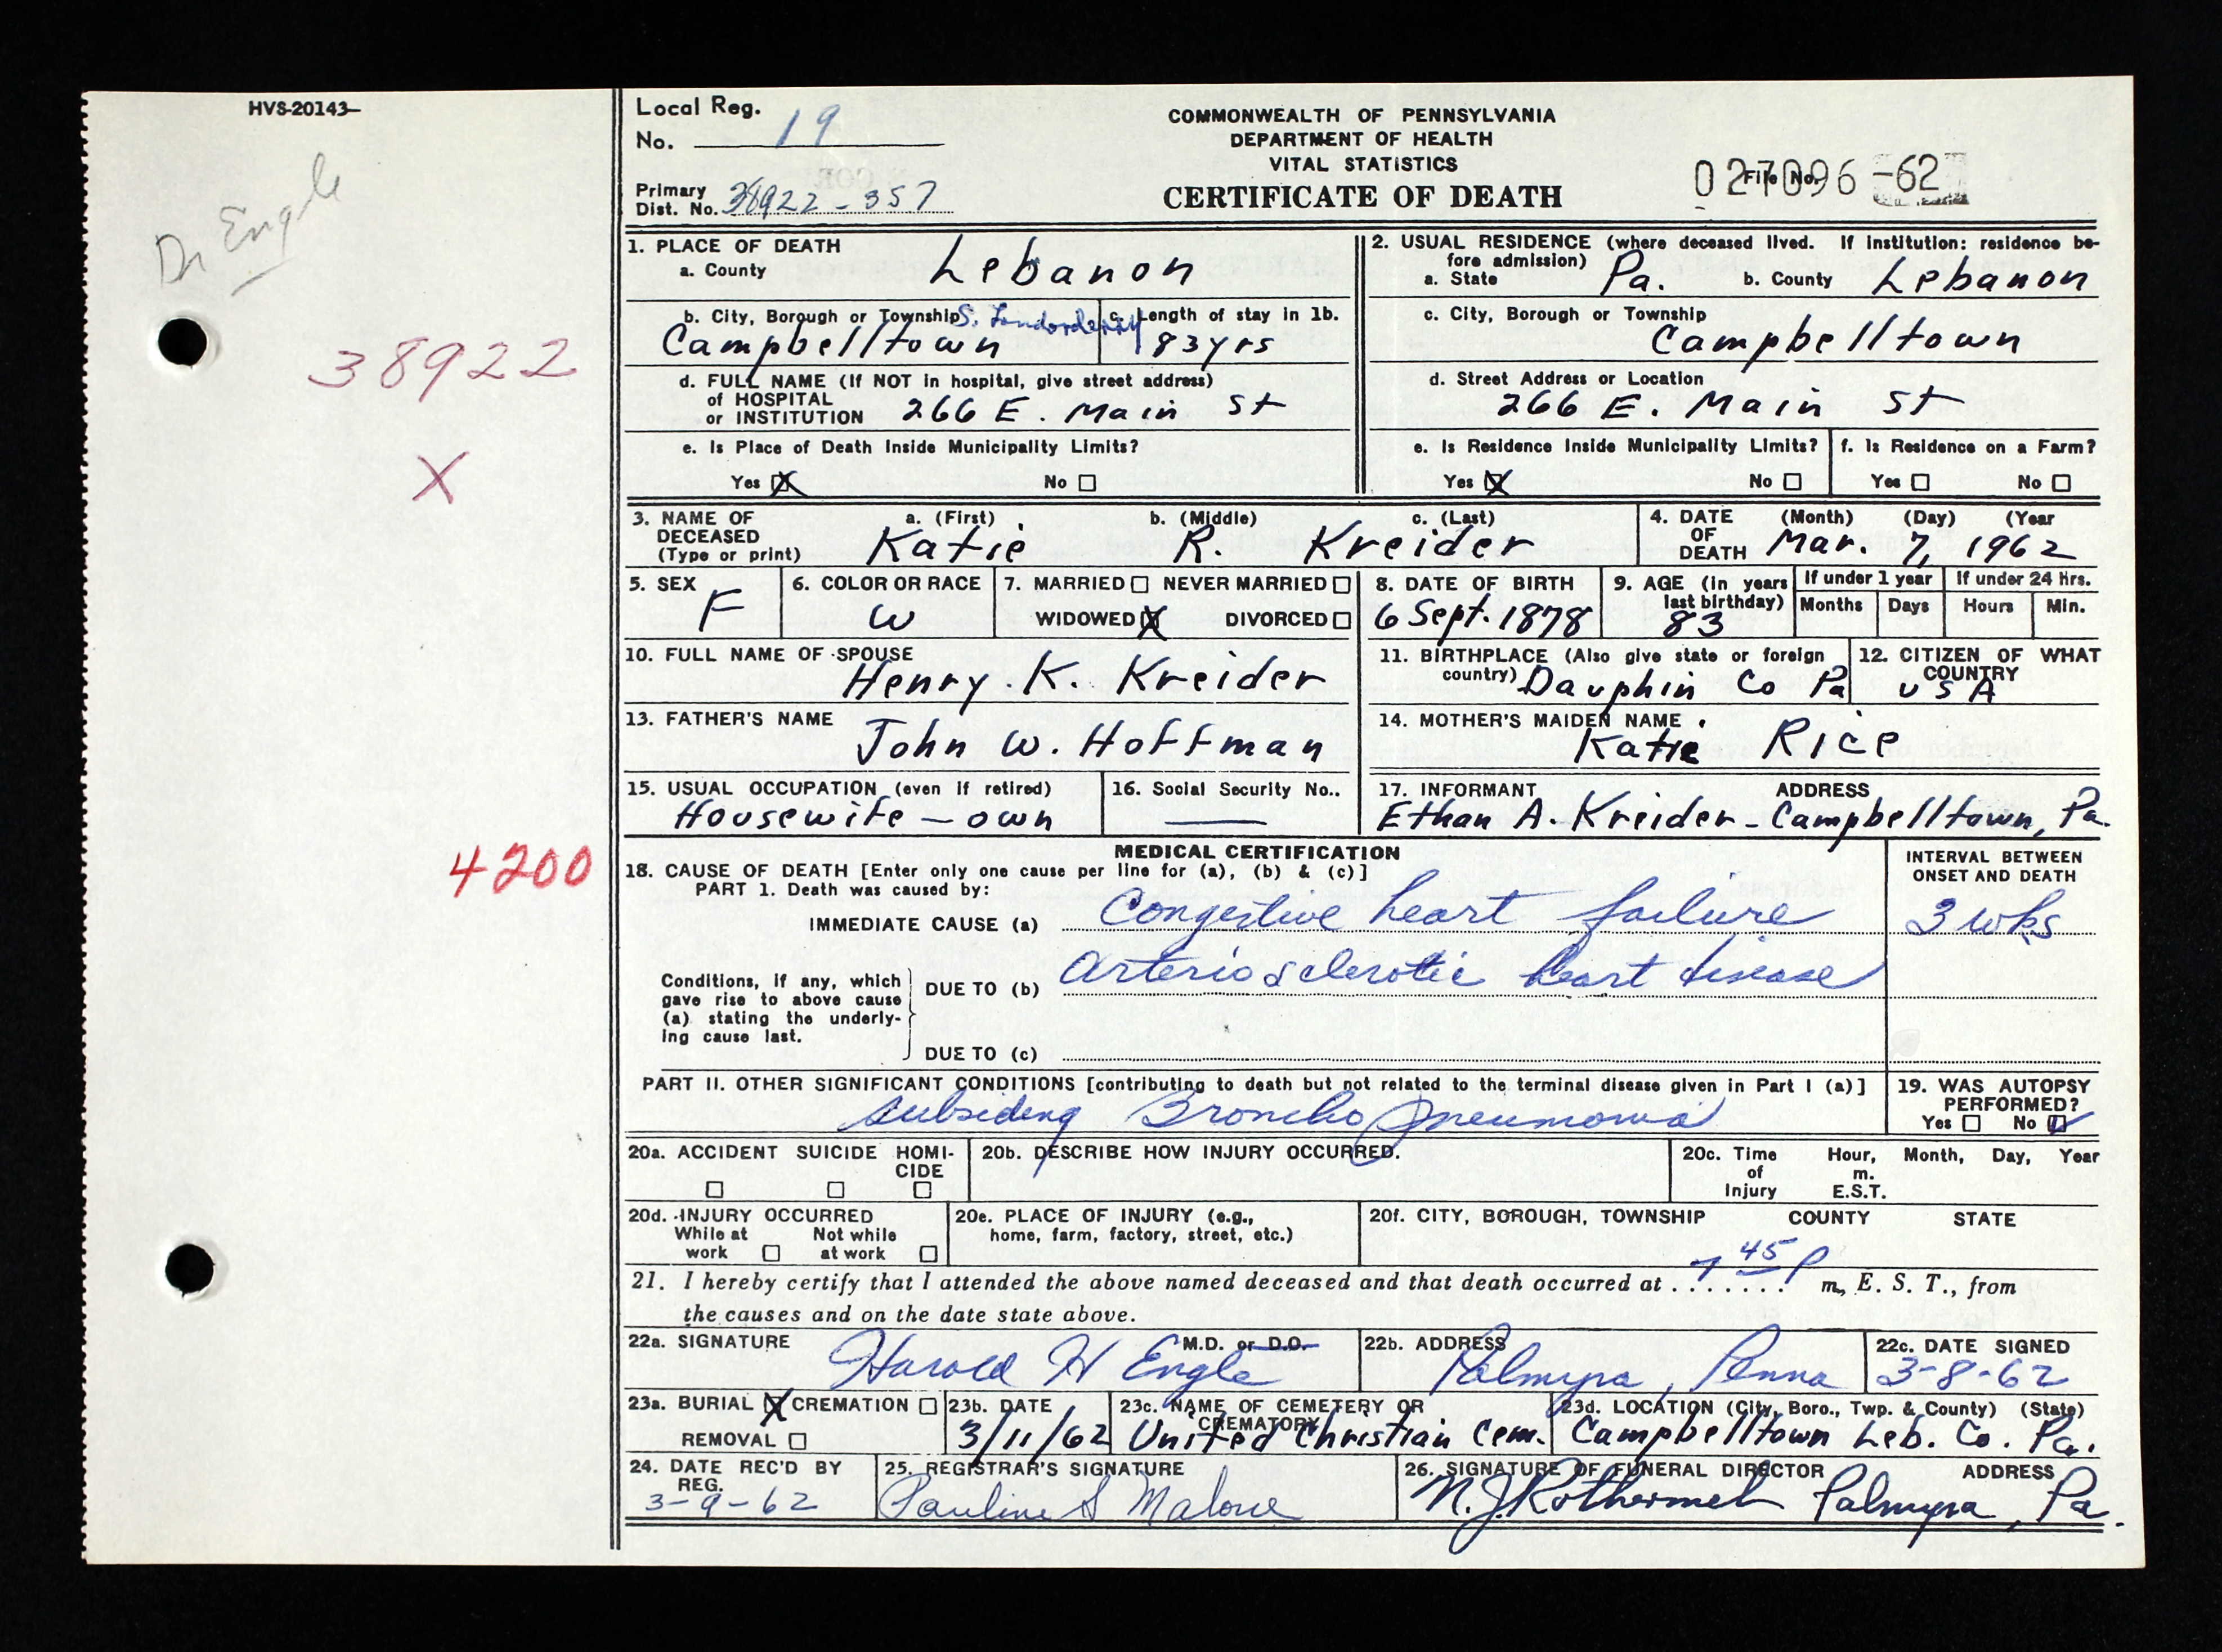 HVS-20143-
Dr Engle
38922
X
4200
Local Reg.
No. 19
Primary
Dist. No. 38922-357
COMMONWEALTH OF PENNSYLVANIA
DEPARTMENT OF HEALTH
VITAL STATISTICS
CERTIFICATE OF DEATH
File No. 027096-62
1. PLACE OF DEATH
a. County Lebanon
b. City, Borough or Township S. Londonderry
Campbelltown
c. Length of stay in 1b.
83yrs
d. FULL NAME (If NOT in hospital, give street address)
of HOSPITAL
or INSTITUTION 266 E. Main St
e. Is Place of Death Inside Municipality Limits?
Yes X No
2. USUAL RESIDENCE (where deceased lived. If institution: residence be-
fore admission)
a. State Pa. b. County Lebanon
c. City, Borough or Township
Campbelltown
d. Street Address or Location
266 E. Main St
e. Is Residence Inside Municipality Limits?
Yes X No
f. Is Residence on a Farm?
Yes No
3. NAME OF a. (First) b. (Middle) c. (Last)
DECEASED
(Type or print) Katie R. Kreider
4. DATE (Month) (Day) (Year
OF
DEATH Mar. 7, 1962
5. SEX
F
6. COLOR OR RACE
W
7. MARRIED NEVER MARRIED
WIDOWED X DIVORCED
8. DATE OF BIRTH
6 Sept. 1878
9. AGE (in years
last birthday)
83
If under 1 year
Months Days
If under 24 Hrs.
Hours Min.
10. FULL NAME OF SPOUSE
Henry K. Kreider
11. BIRTHPLACE (Also give state or foreign
country) Dauphin Co Pa
12. CITIZEN OF WHAT
COUNTRY
USA
13. FATHER'S NAME
John W. Hoffman
14. MOTHER'S MAIDEN NAME
Katie Rice
15. USUAL OCCUPATION (even if retired)
Housewife - own
16. Social Security No..
—
17. INFORMANT ADDRESS
Ethan A. Kreider - Campbelltown, Pa.
MEDICAL CERTIFICATION
18. CAUSE OF DEATH [Enter only one cause per line for (a), (b) & (c)]
PART 1. Death was caused by:
IMMEDIATE CAUSE (a) Congestive heart failure
INTERVAL BETWEEN
ONSET AND DEATH
3 wks
Conditions, if any, which
gave rise to above cause
(a) stating the underly-
ing cause last.
DUE TO (b) Arteriosclerotic heart disease
DUE TO (c)
PART II. OTHER SIGNIFICANT CONDITIONS [contributing to death but not related to the terminal disease given in Part I (a)]
subsiding Broncho pneumonia
19. WAS AUTOPSY
PERFORMED?
Yes No
20a. ACCIDENT SUICIDE HOMI-
CIDE
20b. DESCRIBE HOW INJURY OCCURRED.
20c. Time Hour, Month, Day, Year
of m.
Injury E.S.T.
20d. INJURY OCCURRED
While at Not while
work at work
20e. PLACE OF INJURY (e.g.,
home, farm, factory, street, etc.)
20f. CITY, BOROUGH, TOWNSHIP COUNTY STATE
21. I hereby certify that I attended the above named deceased and that death occurred at 7 45 P m., E. S. T., from
the causes and on the date state above.
22a. SIGNATURE M.D. or D.O.
Harold H Engle
22b. ADDRESS
Palmyra, Penna
22c. DATE SIGNED
3-8-62
23a. BURIAL X CREMATION
REMOVAL
23b. DATE
3/11/62
23c. NAME OF CEMETERY OR
CREMATORY
United Christian Cem.
23d. LOCATION (City, Boro., Twp. & County) (State)
Campbelltown Leb. Co. Pa.
24. DATE REC'D BY
REG.
3-9-62
25. REGISTRAR'S SIGNATURE
Pauline S Malone
26. SIGNATURE OF FUNERAL DIRECTOR ADDRESS
N. J. Rothermel Palmyra, Pa.